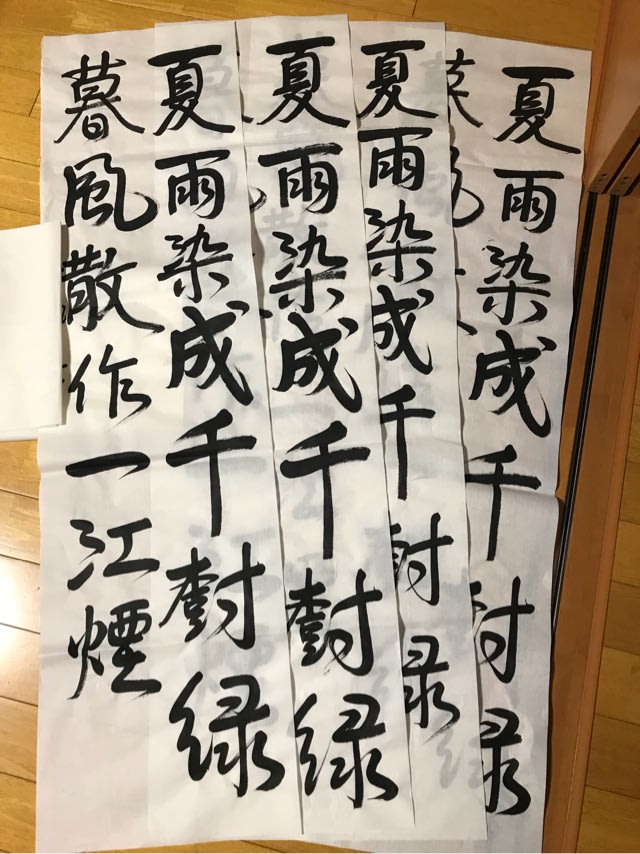 夏雨染成千樹緑
夏雨染成千樹緑
夏雨染成千樹緑
夏雨染成千樹緑
暮風散作一江煙